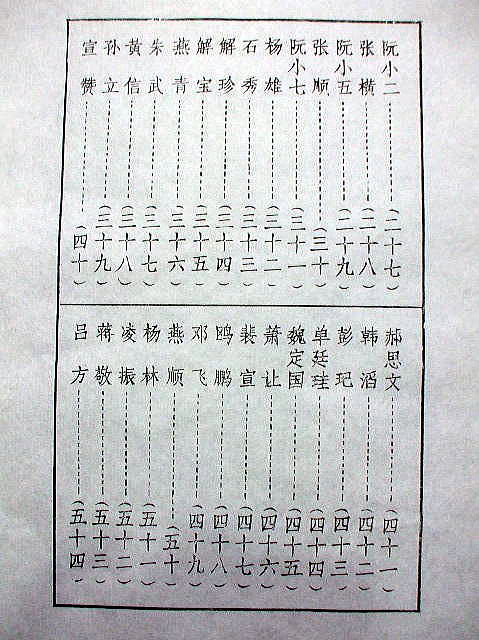 阮小二（二十七）
张横（二十八）
阮小五（二十九）
张顺（三十）
阮小七（三十一）
杨雄（三十二）
石秀（三十三）
解珍（三十四）
解宝（三十五）
燕青（三十六）
朱武（三十七）
黄信（三十八）
孙立（三十九）
宣赞（四十）
郝思文（四十一）
韩滔（四十二）
彭玘（四十三）
单廷珪（四十四）
魏定国（四十五）
萧让（四十六）
裴宣（四十七）
鸥鹏（四十八）
邓飞（四十九）
燕顺（五十）
杨林（五十一）
凌振（五十二）
蒋敬（五十三）
吕方（五十四）